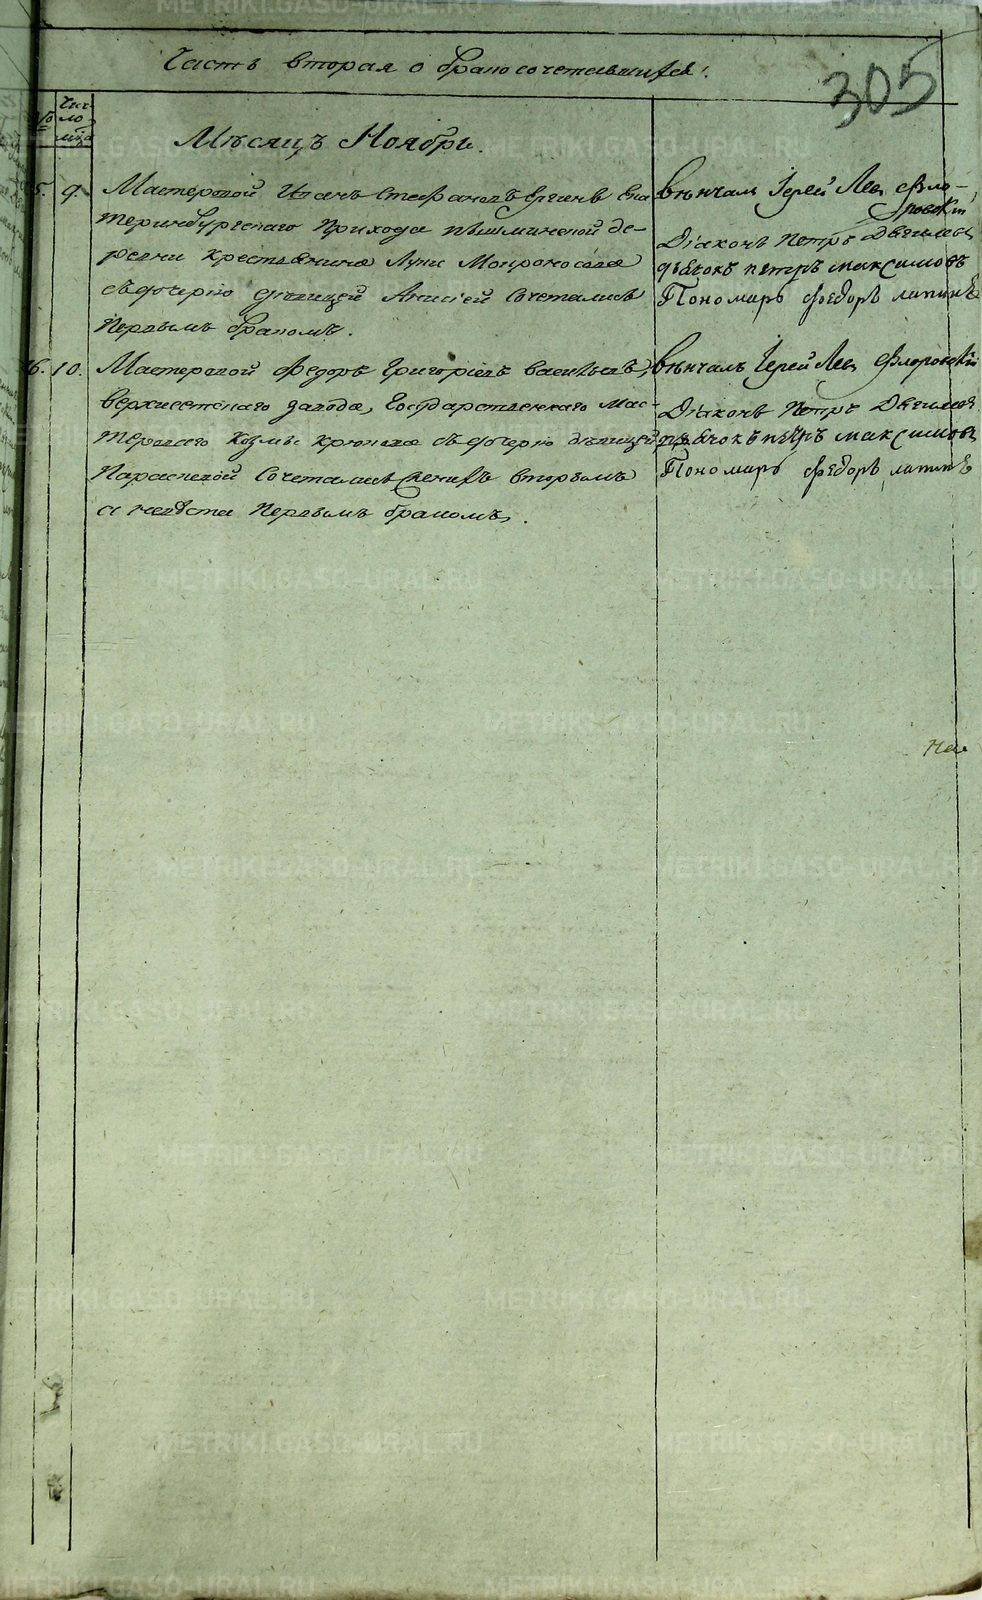 Часть вторая о бракосочетавшихся.
305
Чи-
сло
Мѣсяцъ Ноябрь.
5. 9. Мастеровой Иванъ Стефановъ Ека-
теринбургскаго Прихода пышминской де-
ревни крестьянина Луки
съ дочерію дѣвицей Анисіей Сочетались
Первымъ бракомъ.
Вѣнчалъ Іерей Левъ Фло-
ровскій
Діаконъ Петръ
дьячокъ петръ максимовъ
Пономарь федоръ лапинъ
6. 10. Мастеровой Федоръ Григорьевъ Васильевъ,
Верхисетскаго завода, Государственнаго Мас-
тероваго Козмы Крюкова съ дочерію дѣвицей
Параскевой Сочетались Женихъ вторымъ
а невѣста Первымъ бракомъ.
Вѣнчалъ Іерей Левъ Флоровскій
Діаконъ Петръ
дьячокъ петръ максимовъ
Пономарь федоръ лапинъ
METRIKI.GASO-URAL.RU